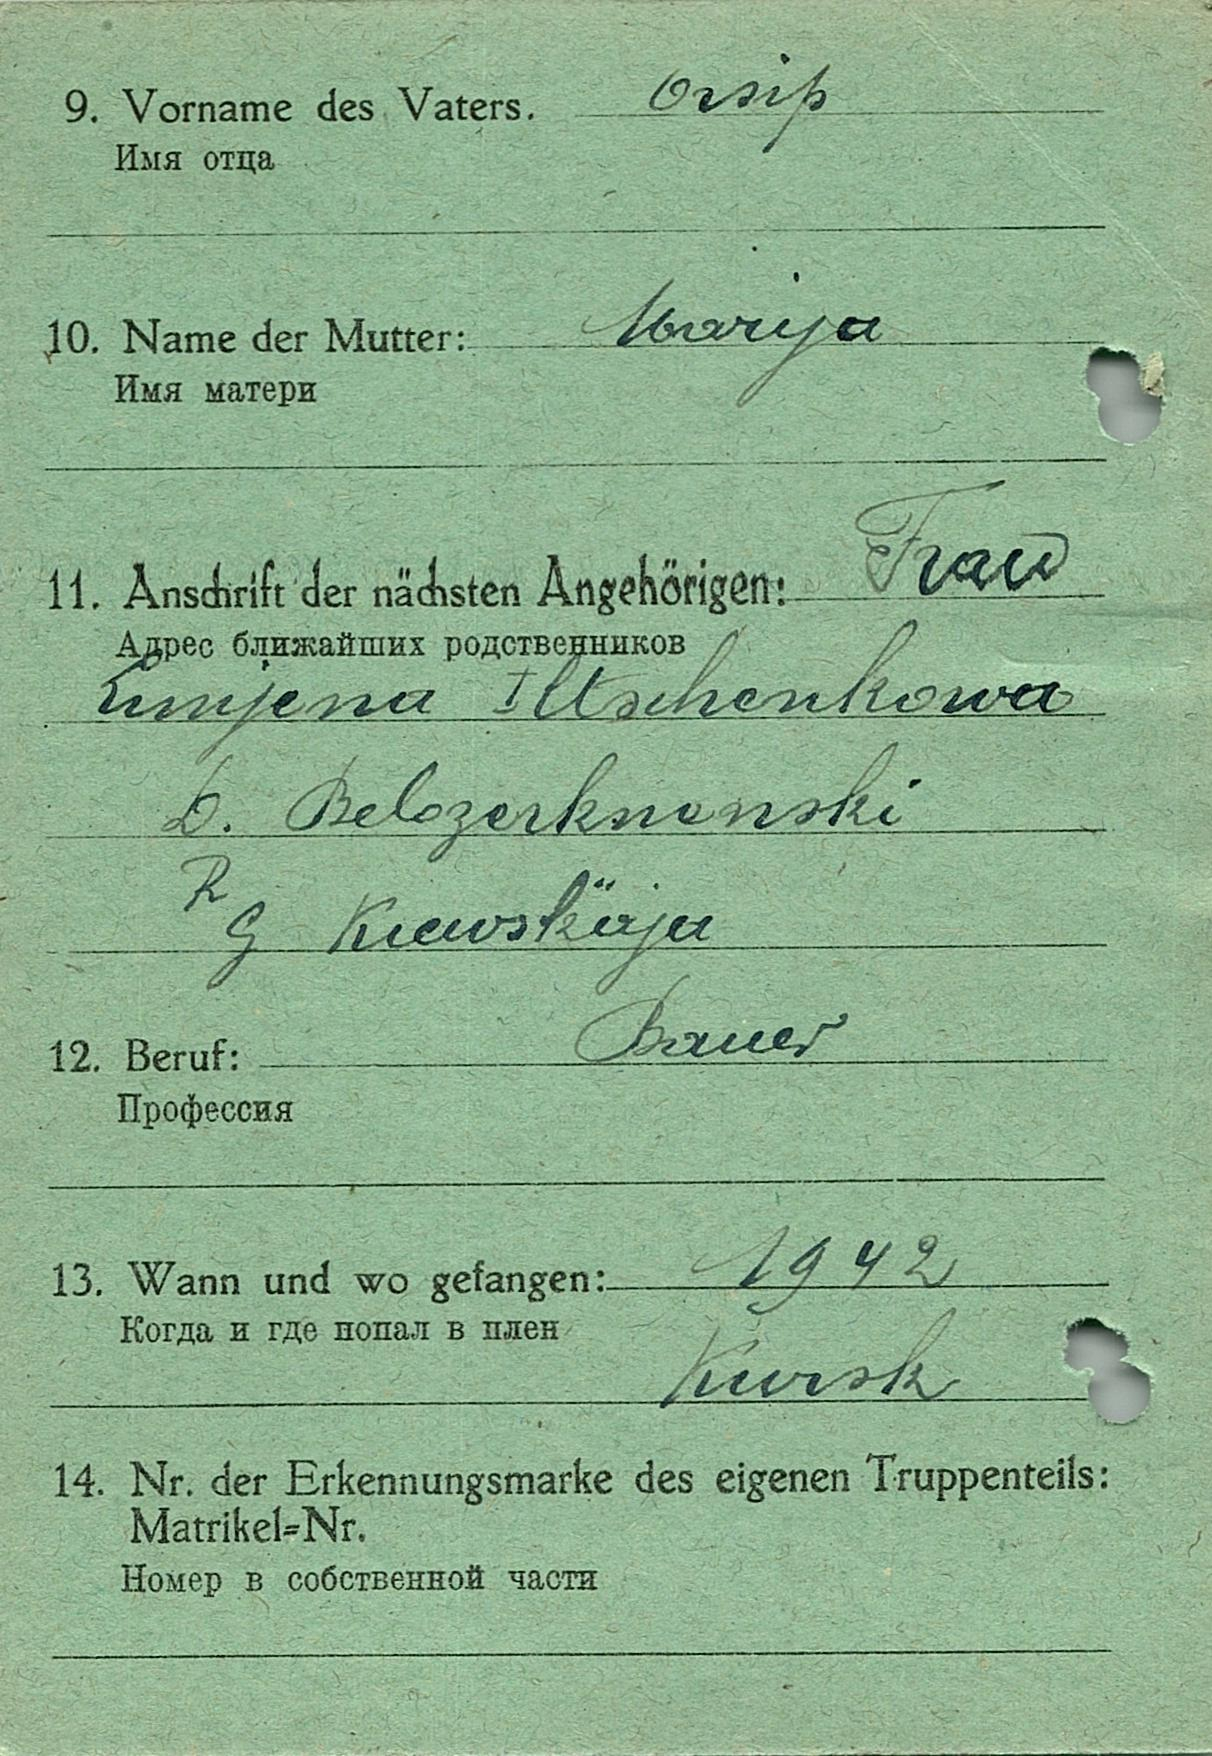 9. Vorname des Vaters. Ossip
Имя отца
10. Name der Mutter: Marija
Имя матери
11. Anschrift der nächsten Angehörigen: Frau
Адрес ближайших родственников
Iltschenkowa
D.
R
G Kiewskäja
12. Beruf: Bauer
Профессия
13. Wann und wo gefangen: 1942
Когда и где попал в плен
Kursk
14. Nr. der Erkennungsmarke des eigenen Truppenteils:
Matrikel=Nr.
Номер в собственной части